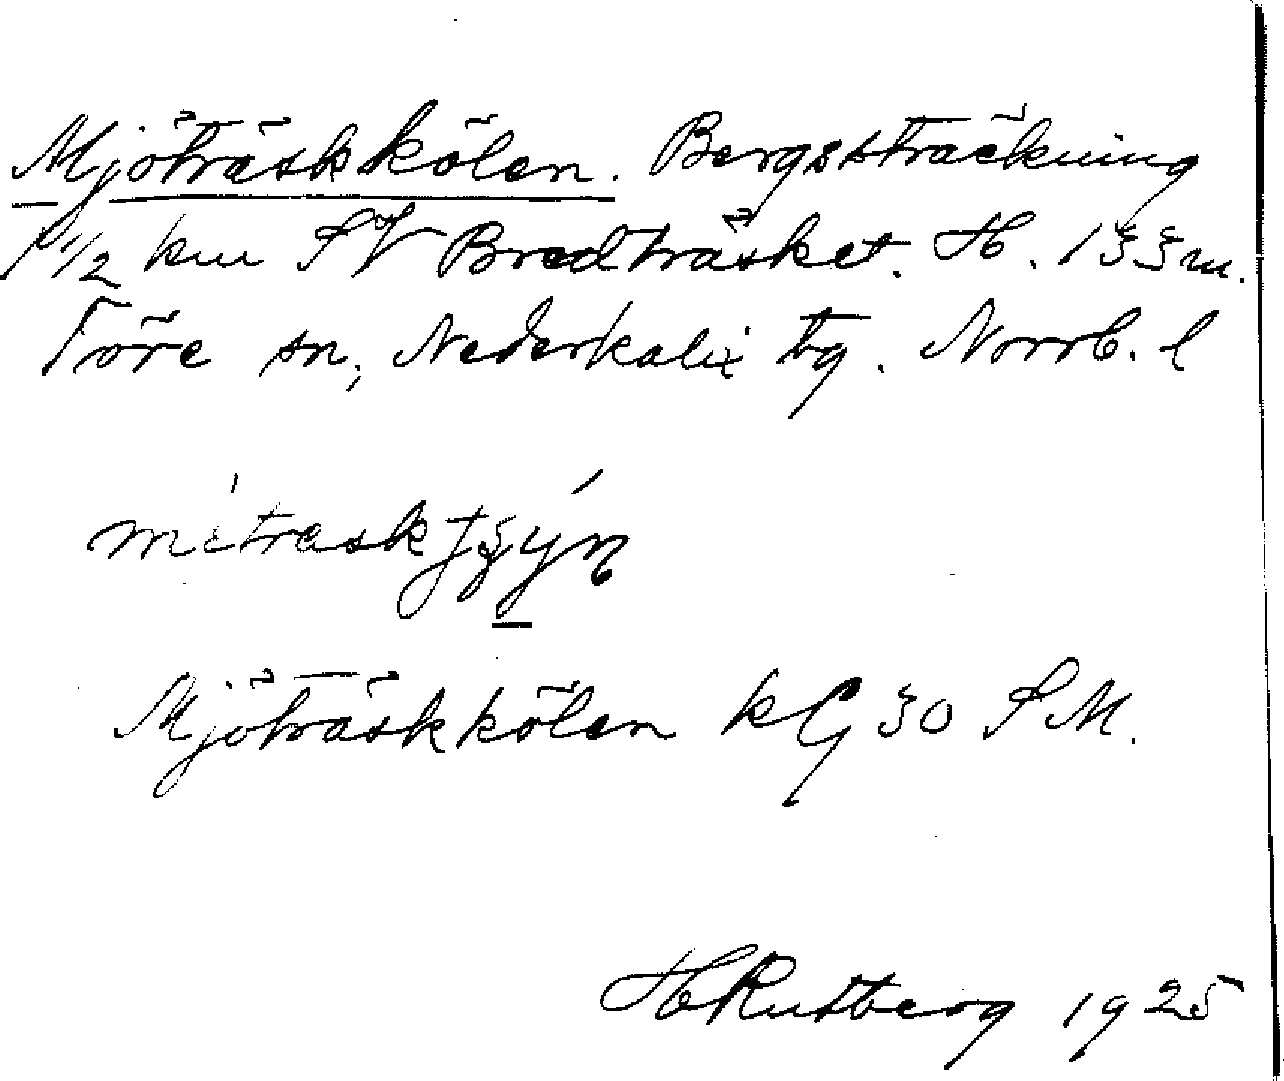 Mjöträskkölen. Bergssträckning
1 1/2 km SV Bredträsket. H. 133 m.
Töre sn, Nederkalix tg. Norrb. l
Mjöträskkölen kG 30 SM.
HRutberg 1925